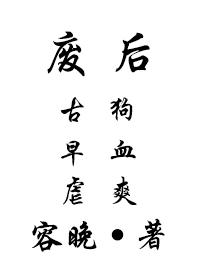 废后
古狗
早血
虐爽
容晚•著